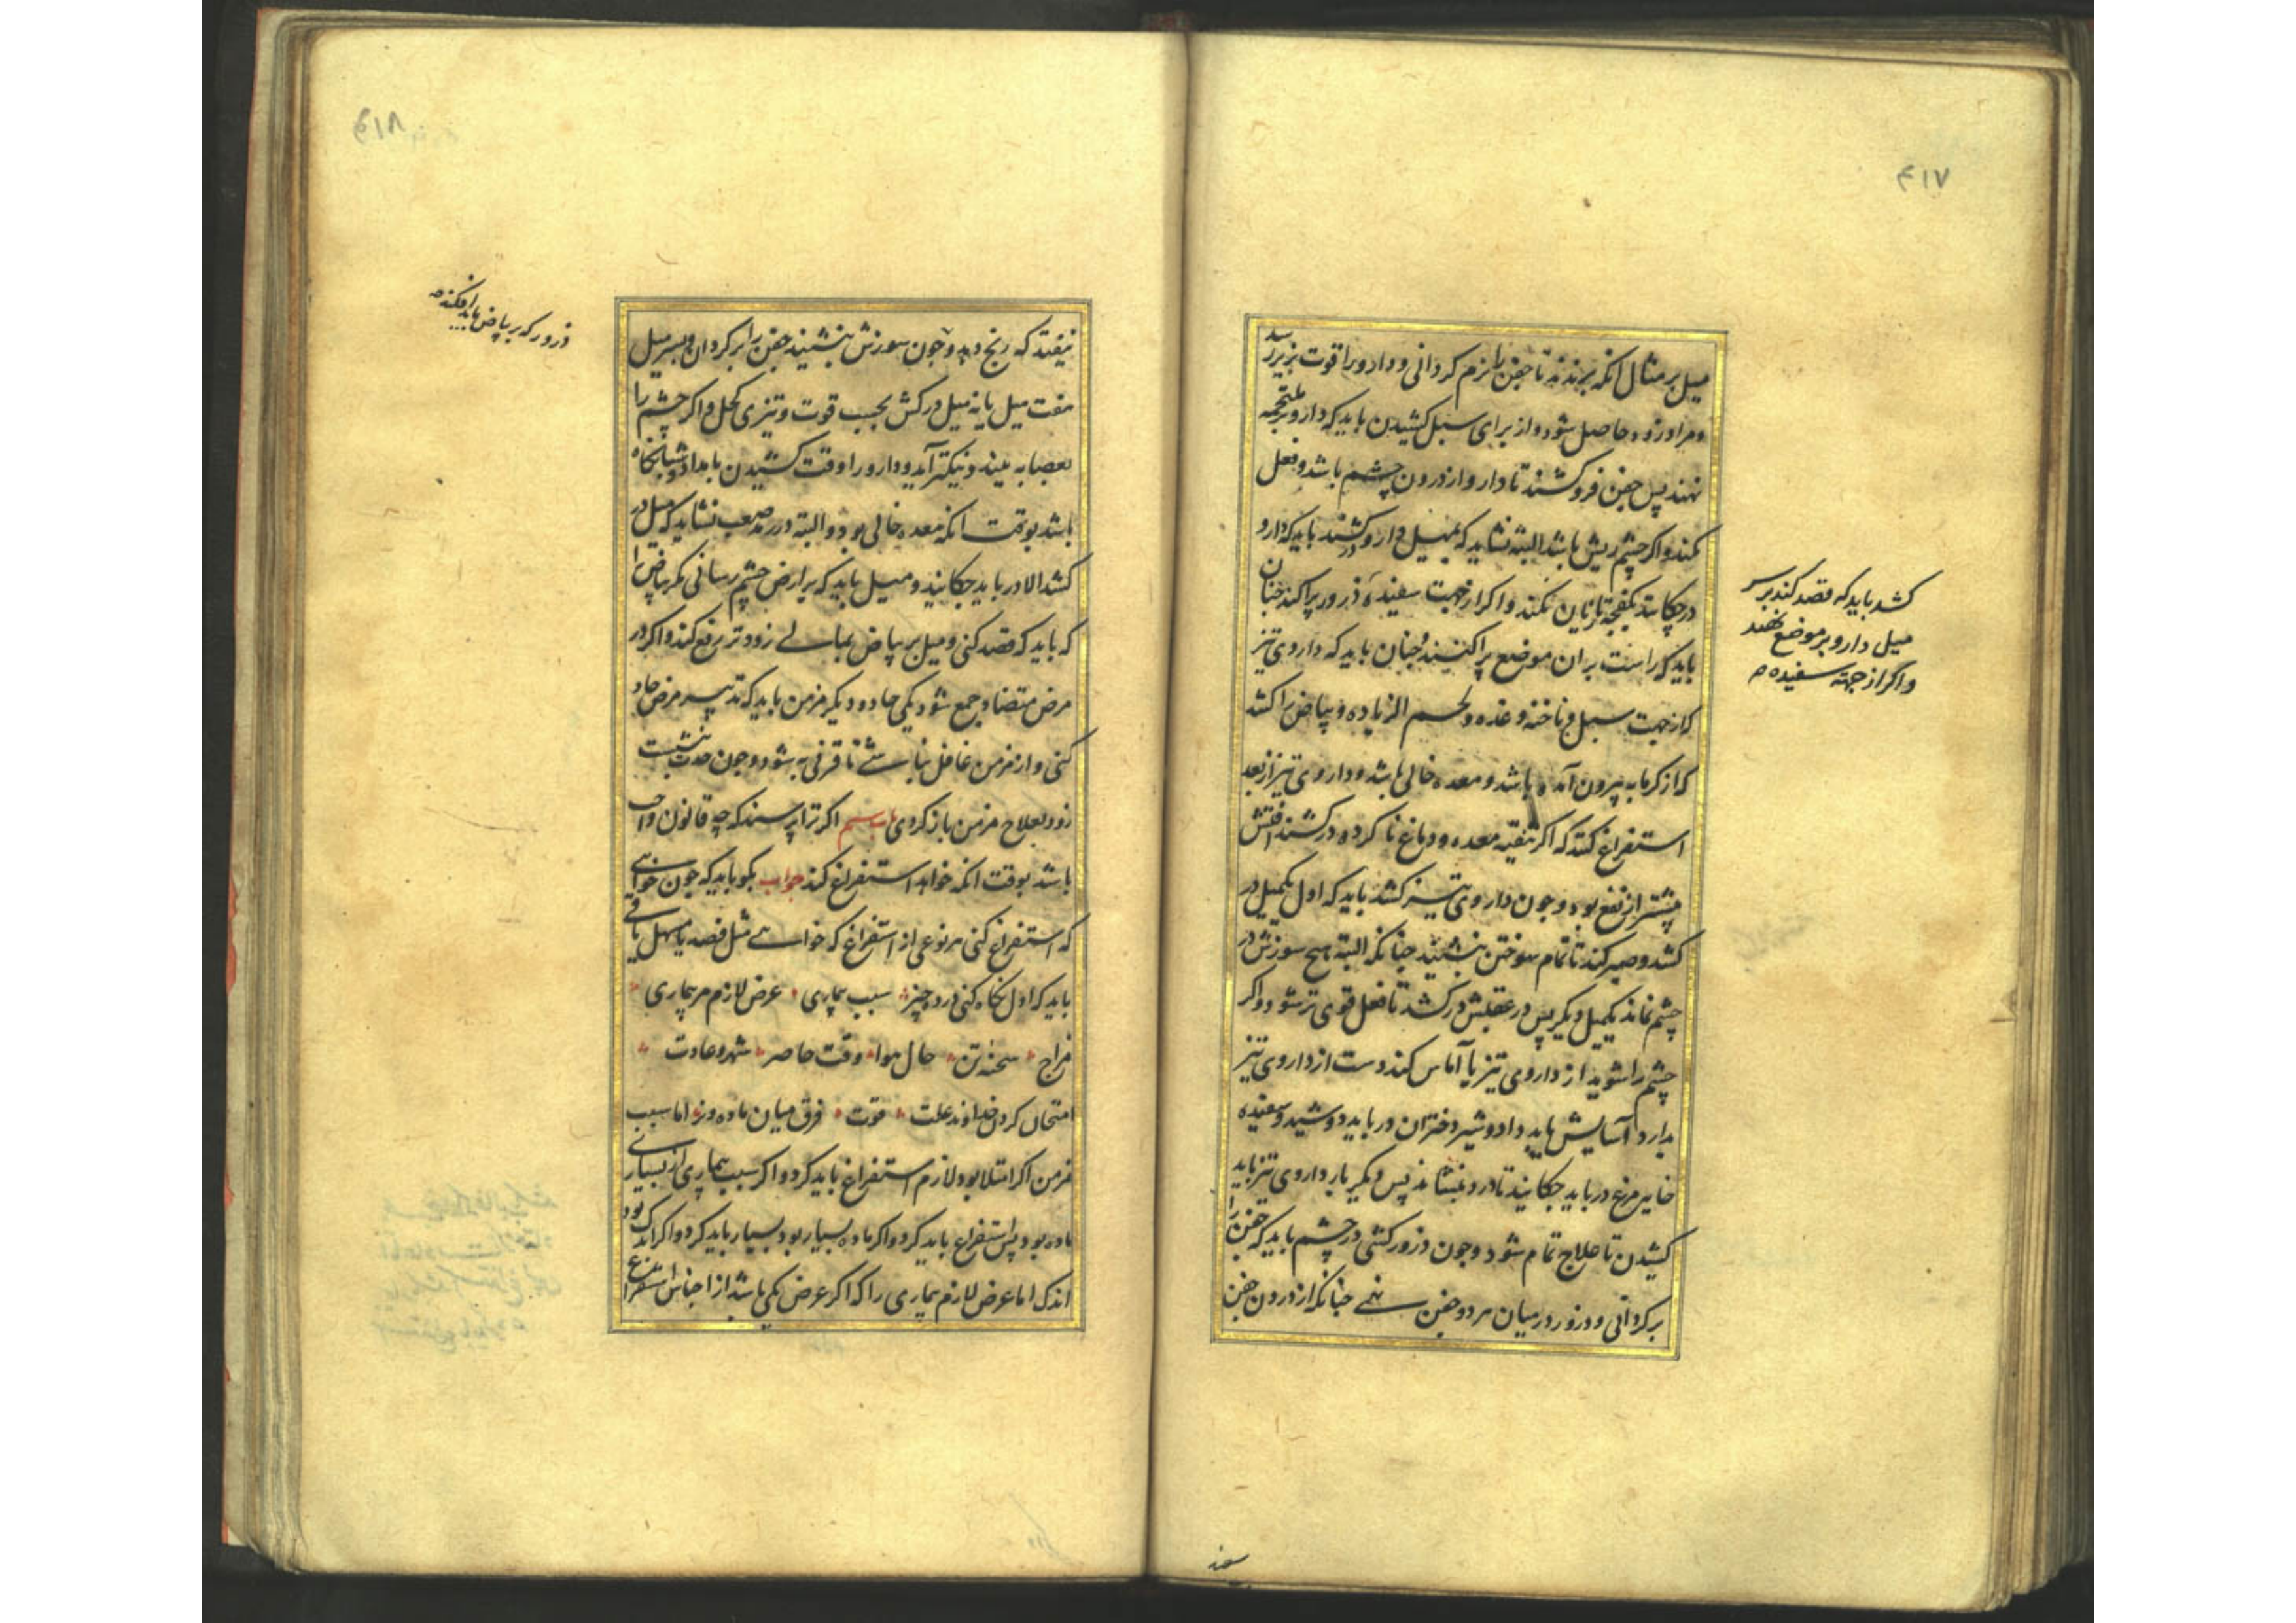 ۴۱۷
میل بر مثال انکه بزنند تا جفن را نرم کردانی و دارو را قوت بزیر رسد
و مراد زود حاصل شود و از برای سبل کشیدن باید که دارو بر ملتحمه
نهند پس جفن فرو کشند تا دارو از درون چشم باشد و فعل
کند و اکر چشم ریش باشد البته نشاید که بمیل دارو در کشند باید که دارو
در چکانند تا زیان نکند و اکر از جهت سفیده ذرور پراکند چنان
باید که راست بران موضع پراکنند و چنان باید که داروی تیز
که از جهت سبل و ناخنه و غده و لحم الزیاده و بیاض را کشد
که از کرمابه بیرون آمده باشد و معده خالی باشد و داروی تیز از بعد
استفراغ کند که اکر تنقیه معده و دماغ نا کرده در کشند آفتش
پیشتر از نفع بود و چون داروی تیز کشد باید که اول یکمیل در
کشد و صبر کند تا تمام سوختن بنشیند چنانکه البته هیچ سوزش در
چشم نماند یکمیل دیکر پس در عقبش در کشد تا فعل قوی تر شود و اکر
چشم را شوید از داروی تیز یا آماس کند دست از داروی تیز
بدارد آسایش باید داد و شیر دختران در باید دوشید و سفیده
خایه مرغ در باید چکانید تا درد بنشاند پس دیکر بار داروی تیز باید
کشیدن تا علاج تمام شود و چون ذرور کشی در چشم باید که جفن را
برکردانی و ذرور در میان هر دو جفن نهی چنانکه از درون جفن
کشد باید که قصد کند بر سر
میل دارو بر موضع نهند
و اکر از جهته سفیده
۴۱۸
نیفتد که رنج دهد و چون سوزش بنشیند جفن را بر کردان و بسر میل
هفت میل یا نه میل در کش بحسب قوت و تیزی کحل و اکر چشم را
بعصابه ببندند نیکتر آید و دارو را وقت کشیدن بامداد و شبانکاه
باشد بوقت انکه معده خالی بود و البته در رمد صعب نشاید که میل در
کشد الا در باید چکانید و میل باید که بر ارض چشم رسانی مکر بیاض را
که باید که قصد کنی و میل بر بیاض بمالی زودتر رفع کند و اکر در
مرض متضاد جمع شود یکی حاد و دیکر مزمن باید که تدبیر مرض حاد
کنی و از مزمن غافل نباشی تا قرنی به شود و چون حدت بنشست
زود بعلاج مزمن باز کردی اکر ترا پرسند که چه قانون واجب
باشد بوقت انکه خواهد استفراغ کند جواب بکو باید که چون خواهی
که استفراغ کنی هر نوعی از استفراغ که خواهی مثل فصد یا مسهل یا قی
باید که اول نکاه کنی در ده چیز سبب بیماری عرض لازم مر بیماری
مزاج سحنه تن حال هوا وقت حاضر شهر و عادت
امتحان کردن خداوند علت قوت فرق میان ماده ورم اما سبب
مزمن اکر امتلا بود لازم استفراغ باید کرد و اکر سبب بیماری از بسیاری
ماده بود پس استفراغ باید کرد و اکر ماده بسیار بود بسیار باید کرد و اکر اندک بود
اندک اما عرض لازم بیماری را که اکر عرض یکی باشد از اجناس استفراغ
ذرور که بر بیاض باید افکند